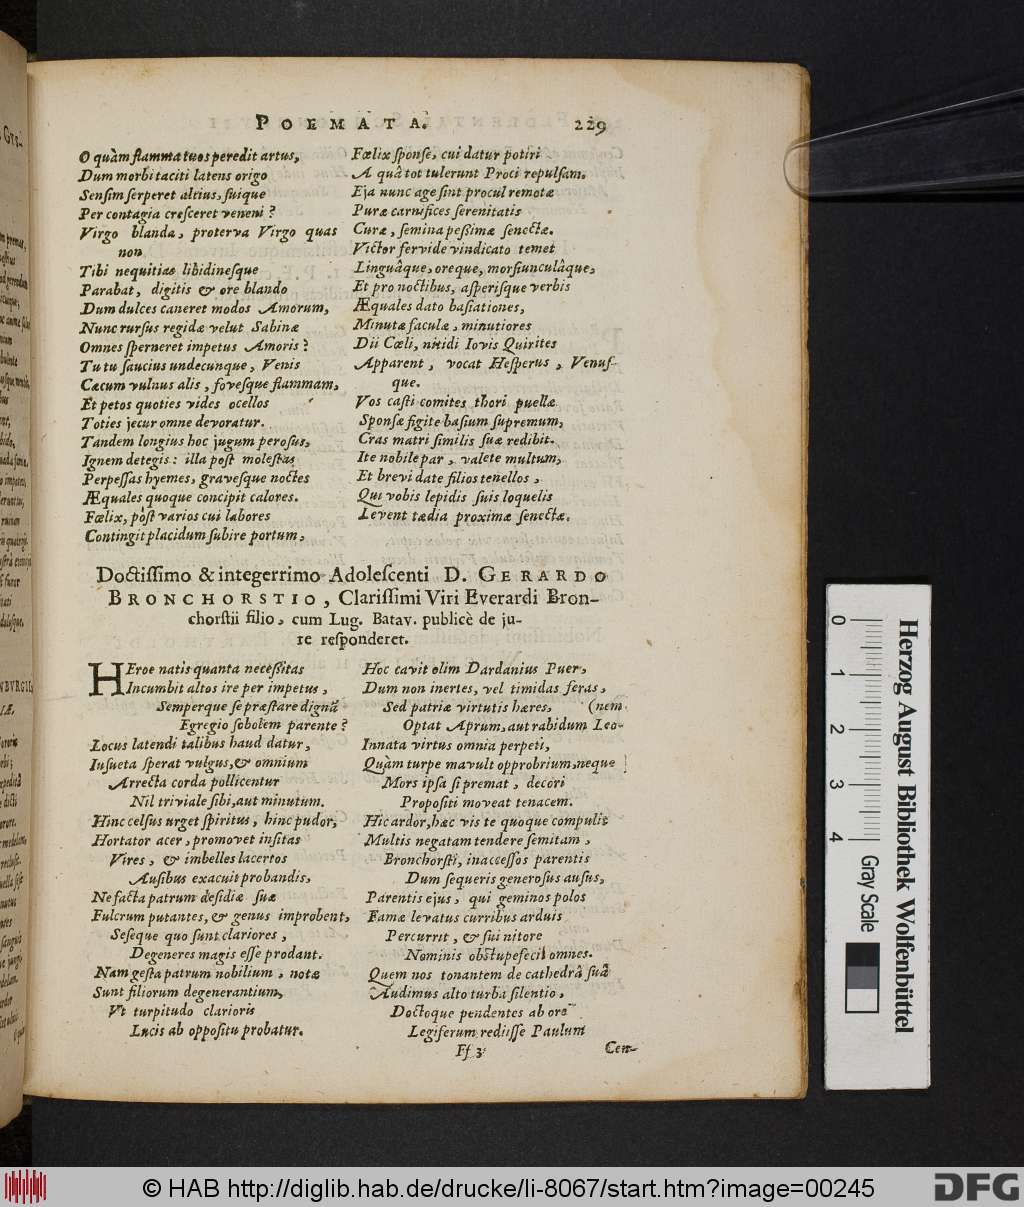 POEMATA. 229
O quàm flamma tuos peredit artus,
Dum morbi taciti latens origo
Sensim serperet altius, suique
Per contagia cresceret veneni?
Virgo blanda, proterva Virgo quas
non
Tibi nequitias libidinesque
Parabat, digitis & ore blando
Dum dulces caneret modos Amorum,
Nunc rursus regidæ velut Sabinæ
Omnes sperneret impetus Amoris?
Tu tu saucius undecunque, Venis
Cæcum vulnus alis, fovesque flammam,
Et petos quoties vides ocellos
Toties jecur omne devoratur.
Tandem longius hoc jugum perosus,
Ignem detegis: illa post molestas
Perpessas hyemes, gravesque noctes
Æquales quoque concipit calores.
Fœlix, pòst varios cui labores
Contingit placidum subire portum,
Fœlix sponse, cui datur potiri
A quâ tot tulerunt Proci repulsam.
Eja nunc age sint procul remotæ
Puræ carnifices serenitatis
Curæ, semina pessimæ senectæ.
Victor fervide vindicato temet
Linguâque, oreque, morsiunculâque,
Et pro noctibus, asperisque verbis
Æquales dato basiationes,
Minutæ faculæ, minutiores
Dii Cœli, nitidi Iovis Quirites
Apparent, vocat Hesperus, Venus-
que.
Vos casti comites thori puellæ
Sponsæ figite basium supremum,
Cras matri similis suæ redibit.
Ite nobile par, valete multum,
Et brevi date filios tenellos,
Qui vobis lepidis suis loquelis
Levent tædia proximæ senectæ.
Doctissimo & integerrimo Adolescenti D. GERARDO
BRONCHORSTIO, Clarissimi Viri Everardi Bron-
chorstii filio, cum Lug. Batav. publicè de ju-
re responderet.
HEroe natis quanta necessitas
Incumbit altos ire per impetus,
Semperque se præstare dignâ
Egregio sobolem parente?
Locus latendi talibus haud datur,
Iusueta sperat vulgus, & omnium
Arrecta corda pollicentur
Nil triviale sibi, aut minutum.
Hinc celsus urget spiritus, hinc pudor,
Hortator acer, promovet insitas
Vires, & imbelles lacertos
Ausibus exacuit probandis,
Ne facta patrum desidiæ suæ
Fulcrum putantes, & genus improbent,
Seseque quo sunt clariores,
Degeneres magis esse prodant.
Nam gesta patrum nobilium, notæ
Sunt filiorum degenerantium,
Vt turpitudo clarioris
Lucis ab oppositu probatur.
Hoc cavit olim Dardanius Puer,
Dum non inertes, vel timidas feras,
Sed patriæ virtutis hæres, (nem
Optat Aprum, aut rabidum Leo-
Innata virtus omnia perpeti,
Quàm turpe mavult opprobrium, neque
Mors ipsa si premat, decori
Propositi moveat tenacem.
Hic ardor, hæc vis te quoque compulit
Multis negatam tendere semitam,
Bronchorsti, inaccessos parentis
Dum sequeris generosus ausus,
Parentis ejus, qui geminos polos
Famæ levatus curribus arduis
Percurrit, & sui nitore
Nominis obstupefecit omnes.
Quem nos tonantem de cathedrâ suâ
Audimus alto turba silentio,
Doctoque pendentes ab ore
Legiferum rediisse Paulum
Ff 3 Cen-
0 1 2 3 4
Gray Scale
Herzog August Bibliothek Wolfenbüttel
© HAB http://diglib.hab.de/drucke/li-8067/start.htm?image=00245
DFG